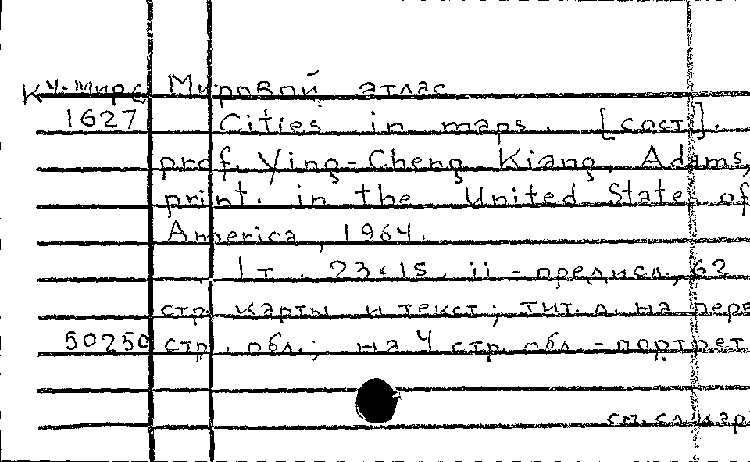 К У-Мирс Мировой атлас
1627 Cities in maps. [сост].
prof. Ying-Cheng Kiang, Adams,
print. in the United States of
America, 1964.
1 т. 23×15. ii - предисл, 62
стр карты и текст; тит. л. на пере
50250 стр. обл.; на 4 стр. обл. - портрет
см. след. кар